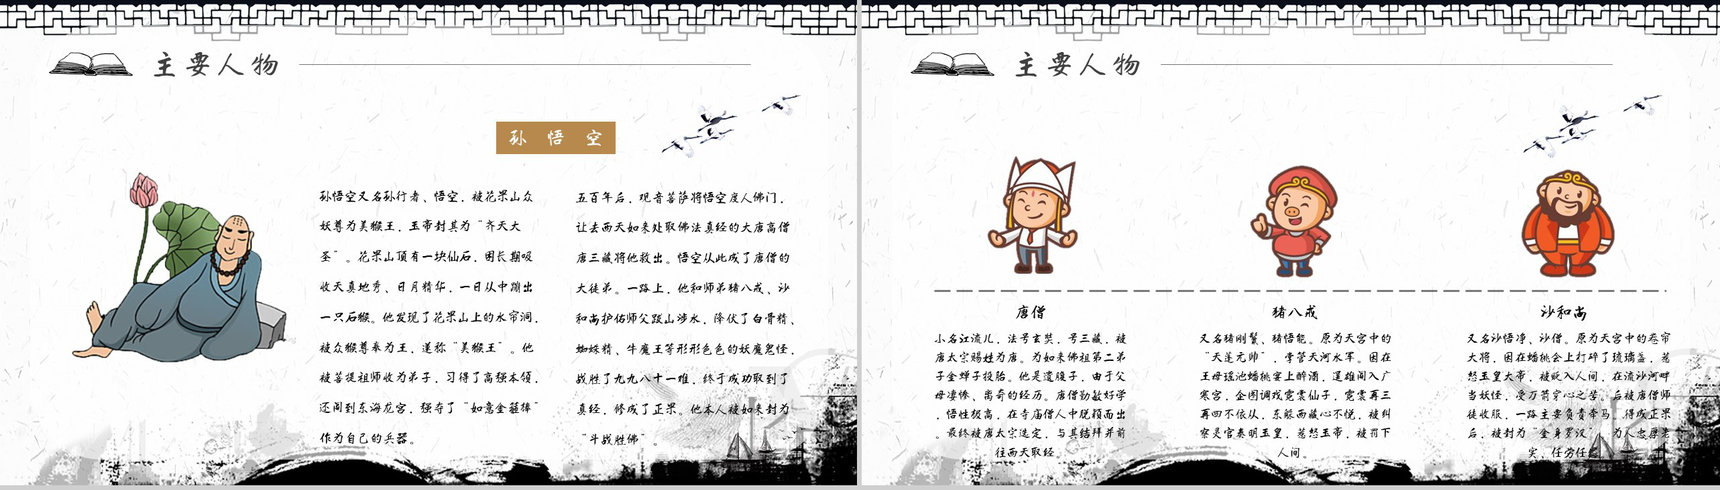 主要人物
孙悟空
孙悟空又名孙行者、悟空，被花果山众
妖尊为美猴王，玉帝封其为“齐天大
圣”。花果山顶有一块仙石，因长期吸
收天真地秀、日月精华，一日从中蹦出
一只石猴。他发现了花果山上的水帘洞，
被众猴尊奉为王，遂称“美猴王”。他
被菩提祖师收为弟子，习得了高强本领，
还闹到东海龙宫，强夺了“如意金箍棒”
作为自己的兵器。
五百年后，观音菩萨将悟空度入佛门，
让去西天如来处取佛法真经的大唐高僧
唐三藏将他救出。悟空从此成了唐僧的
大徒弟。一路上，他和师弟猪八戒、沙
和尚护佑师父跋山涉水，降伏了白骨精、
蜘蛛精、牛魔王等形形色色的妖魔鬼怪，
战胜了九九八十一难，终于成功取到了
真经，修成了正果。他本人被如来封为
“斗战胜佛”。
主要人物
唐僧
小名江流儿，法号玄奘，号三藏，被
唐太宗赐姓为唐。为如来佛祖第二弟
子金蝉子投胎。他是遗腹子，由于父
母凄惨、离奇的经历，唐僧勤敏好学
，悟性极高，在寺庙僧人中脱颖而出
。最终被唐太宗选定，与其结拜并前
往西天取经。
猪八戒
又名猪刚鬣、猪悟能。原为天宫中的
“天蓬元帅”，掌管天河水军。因在
王母瑶池蟠桃宴上醉酒，逞雄闯入广
寒宫，企图调戏霓裳仙子，霓裳再三
再四不依从，东躲西藏心不悦，被纠
察灵官奏明玉皇，惹怒玉帝，被罚下
人间。
沙和尚
又名沙悟净、沙僧。原为天宫中的卷帘
大将，因在蟠桃会上打碎了琉璃盏，惹
怒玉皇大帝，被贬入人间，在流沙河畔
当妖怪，受万箭穿心之苦。后被唐僧师
徒收服，一路主要负责牵马，得成正果
后，被封为“金身罗汉”。为人忠厚老
实、任劳任